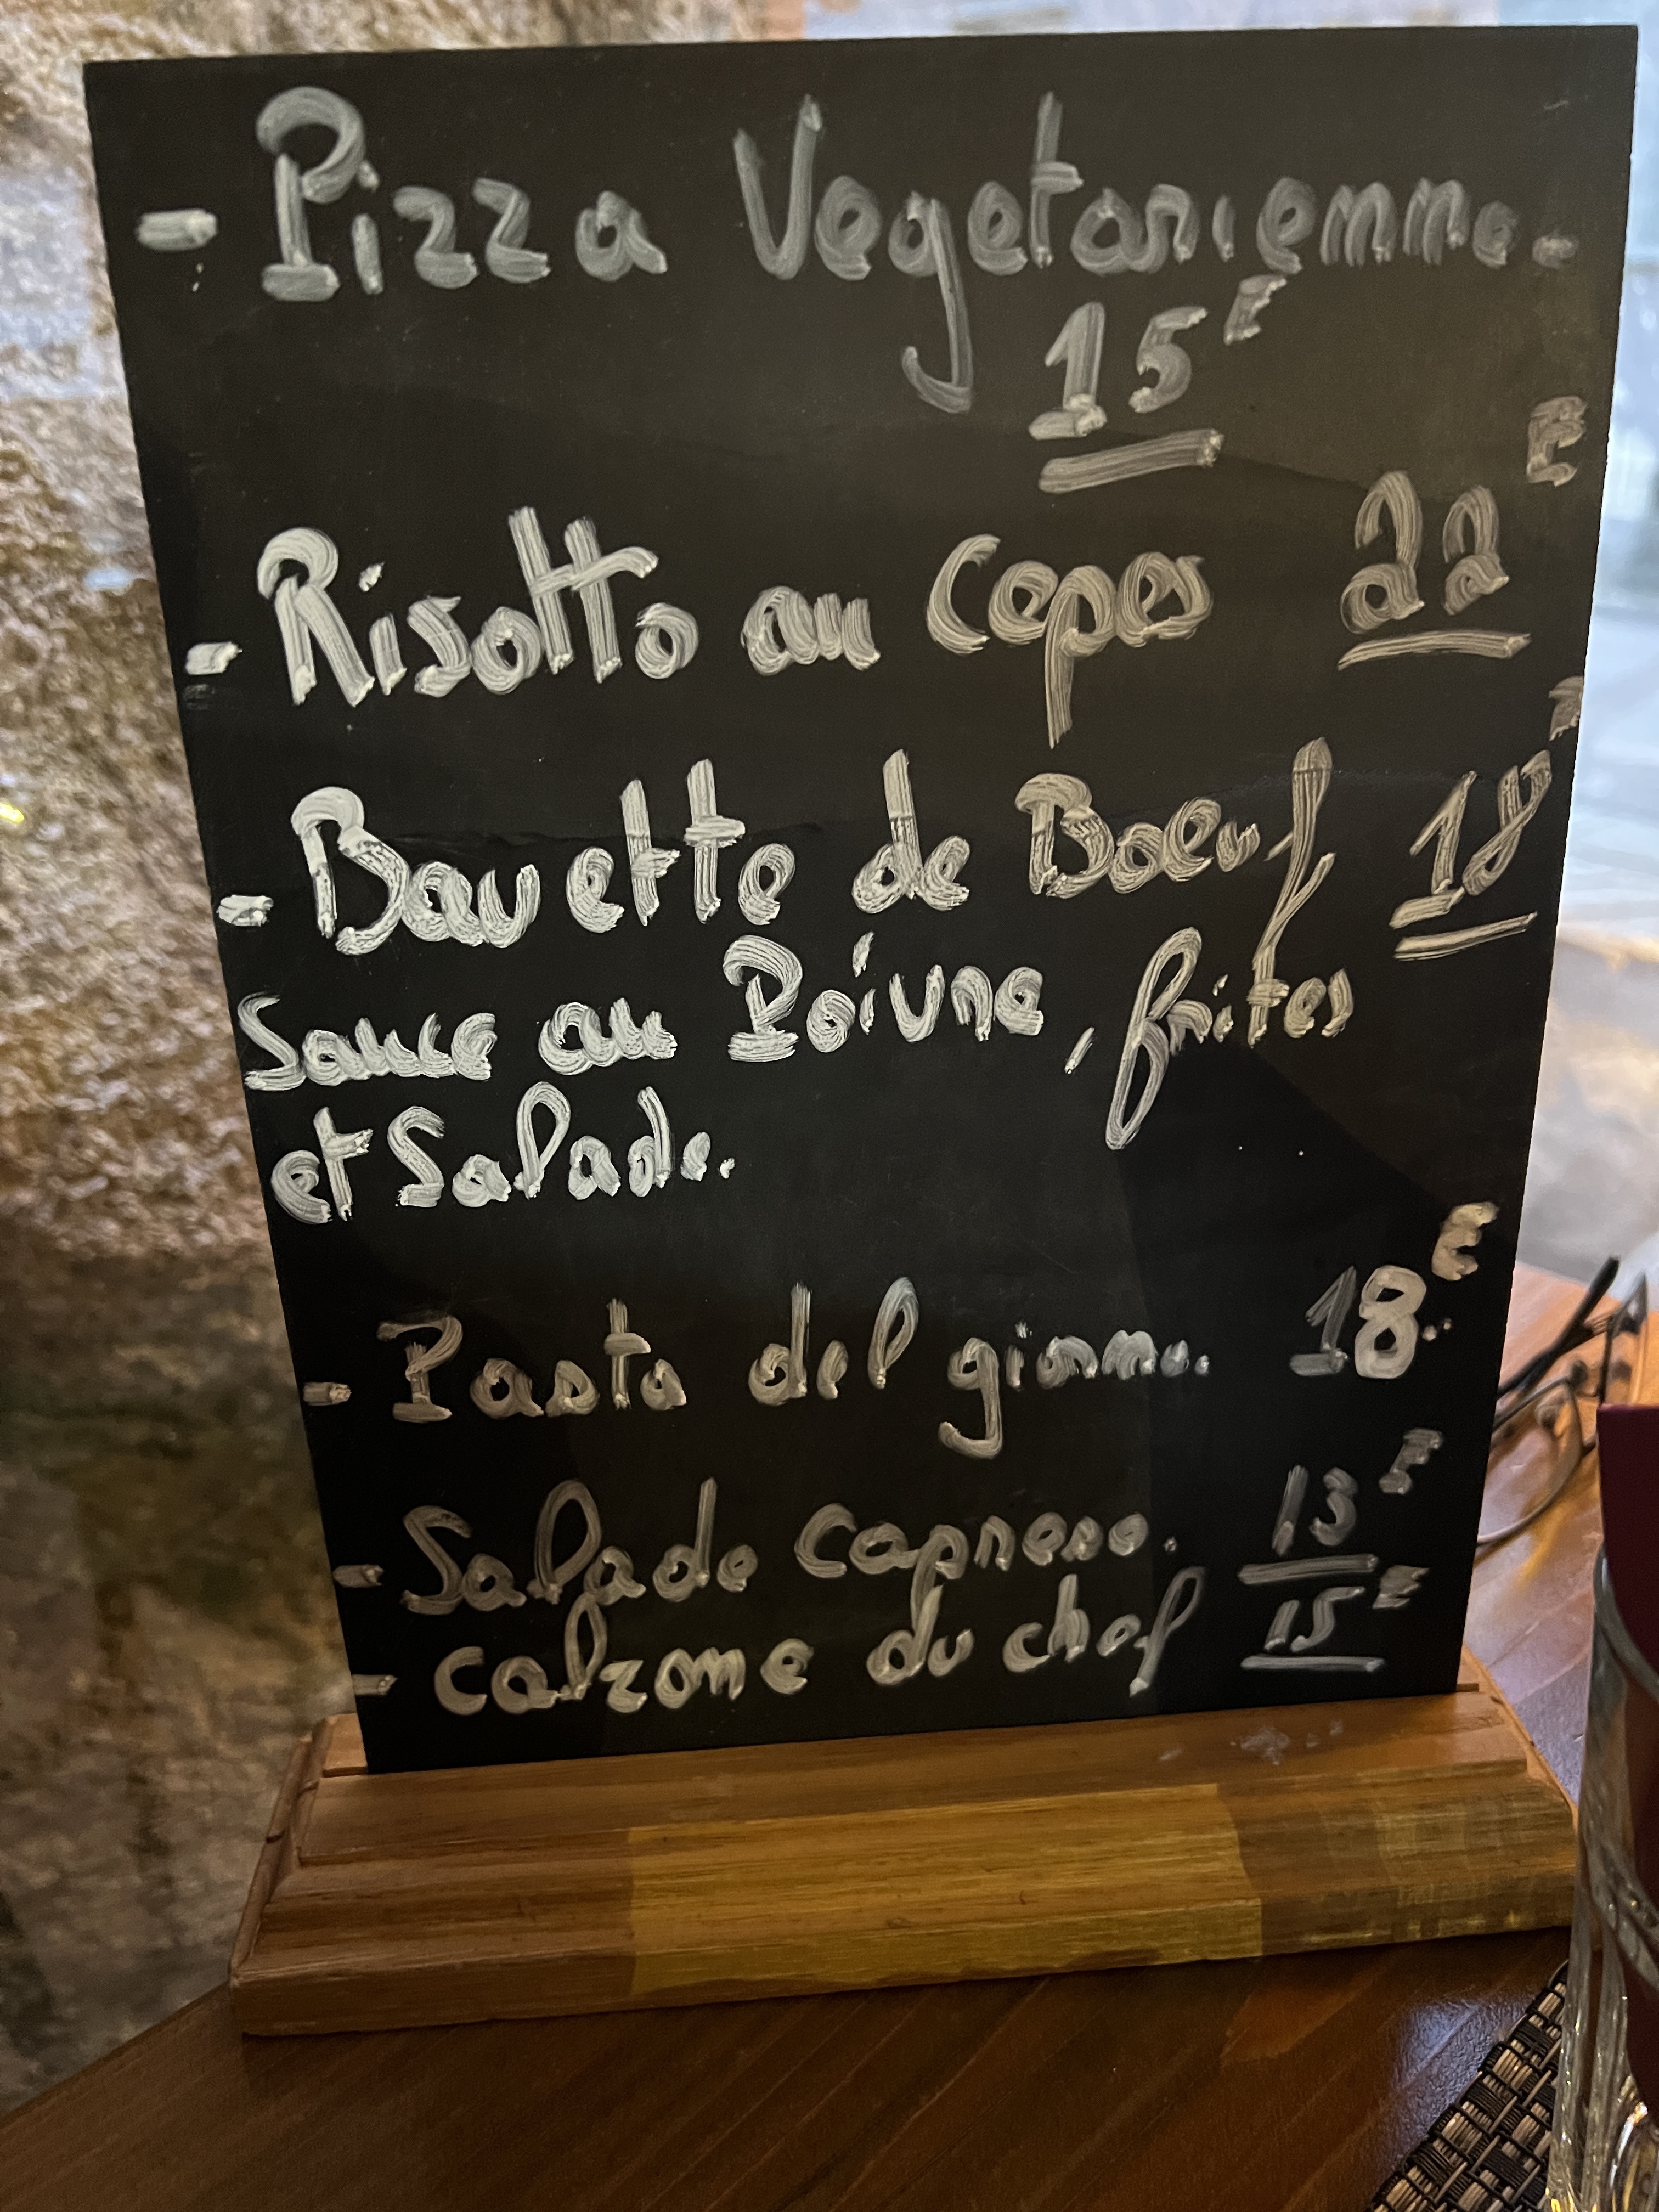 - Pizza Vegetarienne.
15E
- Risotto au Cepes 22E
- Bavette de Boeuf 18E
Sauce au Poivre, frites
et Salade.
- Pasta del giorno. 18E
- Salade caprese. 13E
- calzone du chef 15E